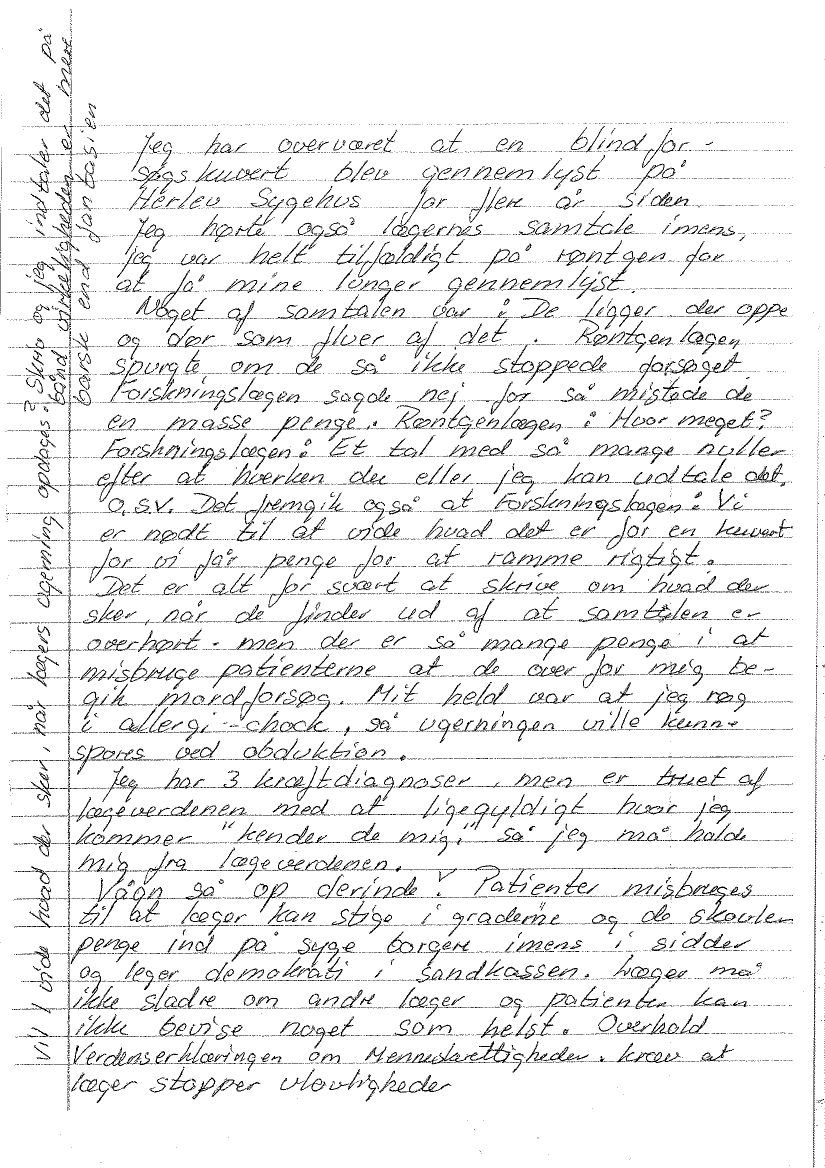 Jeg har overværet at en blindfor-
søgskuvert blev gennemlyst på
Herlev Sygehus for flere år siden.
Jeg hørte også lægernes samtale imens,
jeg var helt tilfældigt på røntgen for
at få mine lunger gennemlyst.
Noget af samtalen var : De ligger der oppe
og dør som fluer af det . Røntgenlægen
spurgte om de så ikke stoppede forsøget.
Forskningslægen sagde nej for så mistede de
en masse penge. Røntgenlægen : Hvor meget?
Forskningslægen : Et tal med så mange nuller
efter at hverken du eller jeg kan udtale det.
O.S.V. Det fremgik også at Forskningslægen : Vi
er nødt til at vide hvad det er for en kuvert
for vi får penge for at ramme rigtigt.
Det er alt for svært at skrive om hvad der
sker, når de finder ud af at samtalen er
overhørt - men der er så mange penge i at
misbruge patienterne at de over for mig be-
gik mordforsøg. Mit held var at jeg røg
i allergi-chock, så ugerningen ville kunne
spores ved obduktion.
Jeg har 3 kræftdiagnoser, men er truet af
lægeverdenen med at ligegyldigt hvor jeg
kommer "kender de mig," så jeg må holde
mig fra lægeverdenen.
Vågn så op derinde ! Patienter misbruges
til at læger kan stige i graderne og de skovler
penge ind på syge borgere imens i sidder
og leger demokrati i sandkassen. Læger må
ikke sladre om andre læger og patienter kan
ikke bevise noget som helst. Overhold
Verdenserklæringen om Menneskerettigheder. kræv at
læger stopper ulovligheder
Vil I vide hvad der sker, når lægers ugerning opdages? Skriv og jeg indtaler det på
bånd virkeligheden er mere
barsk end fantasien